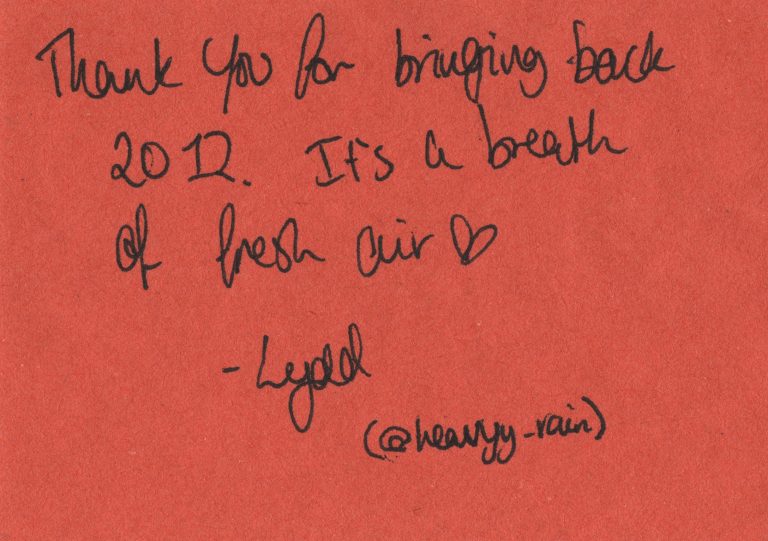 Thank you for bringing back
2012. It's a breath
of fresh air ♡
- Lydd
(@heavyy_rain)